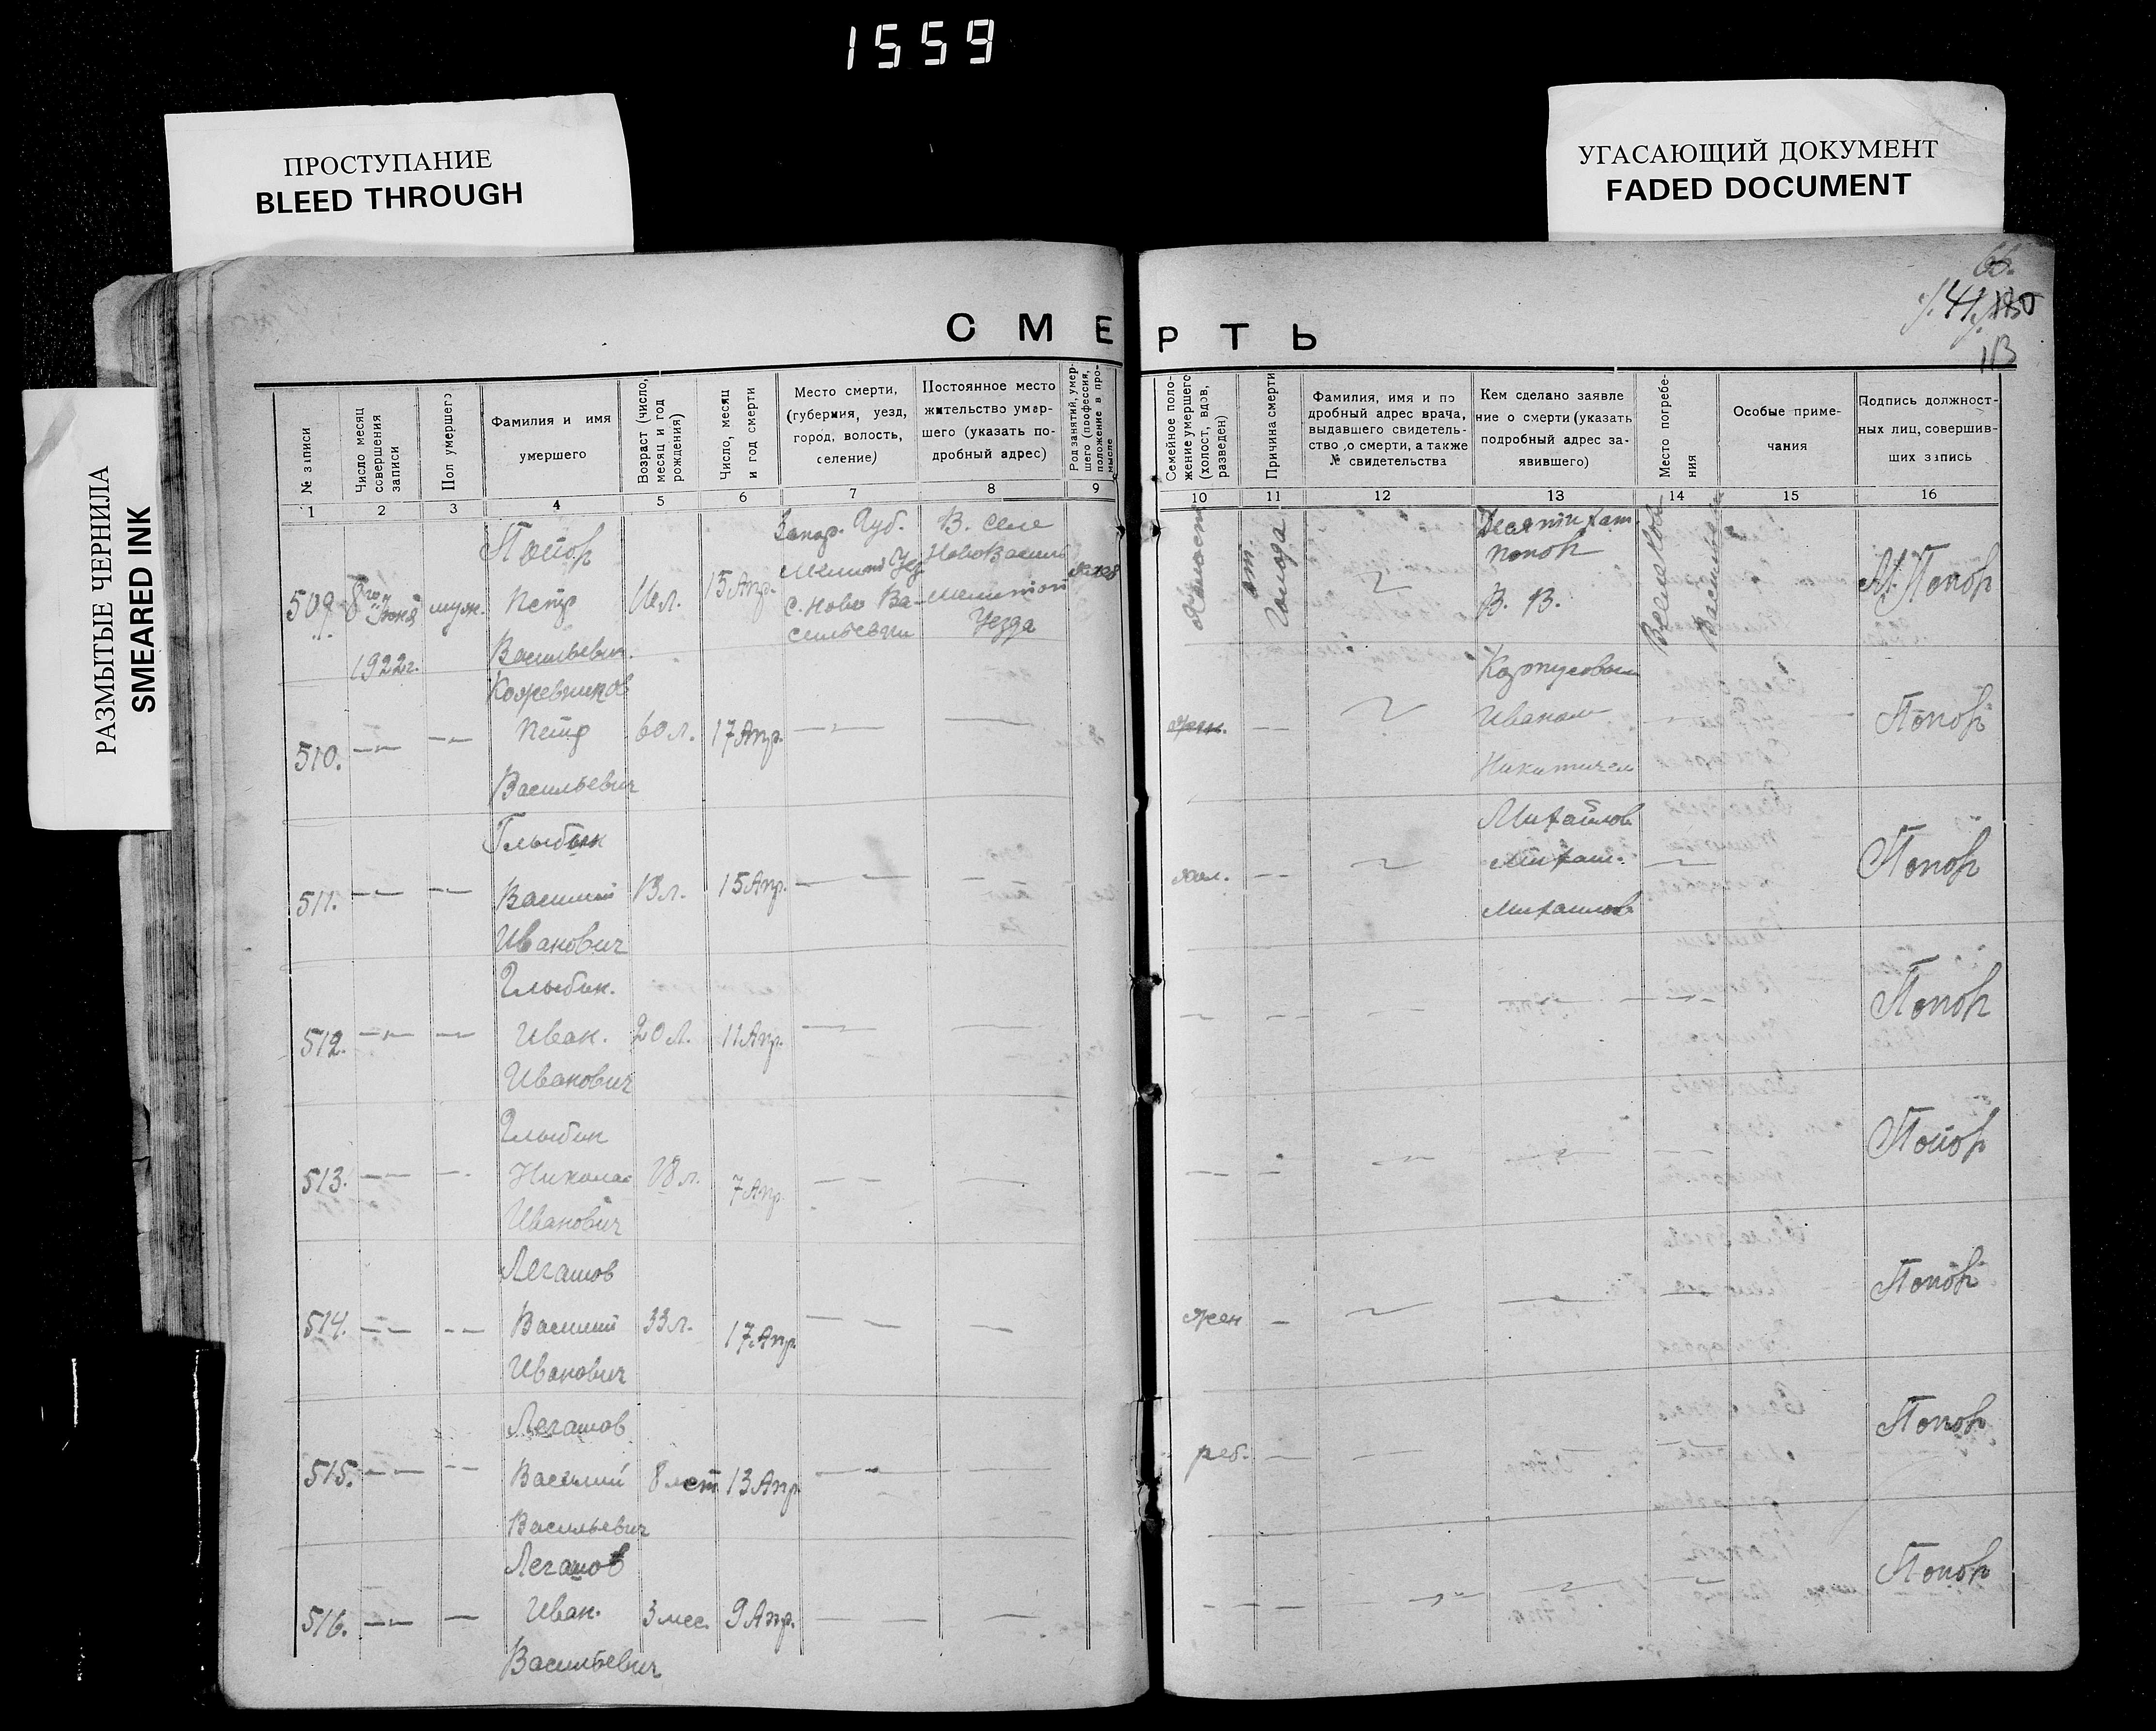 1559
ПРОСТУПАНИЕ
BLEED THROUGH
УГАСАЮЩИЙ ДОКУМЕНТ
FADED DOCUMENT
РАЗМЫТЫЕ ЧЕРНИЛА
SMEARED INK
66.
113
СМЕРТЬ
№ записи
Число месяц совершения записи
Пол умершего
Фамилия и имя умершего
Возраст (число, месяц и год рождения)
Число, месяц и год смерти
Место смерти, (губерния, уезд, город, волость, селение)
Постоянное место жительство умершего (указать подробный адрес)
Род занятий, умершего (профессия, положение в промысле
Семейное положение умершего (холост, вдов, разведен)
Причина смерти
Фамилия, имя и подробный адрес врача, выдавшего свидетельство о смерти, а также № свидетельства
Кем сделано заявление о смерти (указать подробный адрес заявившего)
Место погребения
Особые примечания
Подпись должностных лиц, совершивших запись
1 2 3 4 5 6 7 8 9 10 11 12 13 14 15 16
509. 8го Июня 1922г. муж. Попов Петр Васильевич. 15 Апр. Запор. Губ. Мелит Уез С. Ново Васильевки В. селе Ново Васил Мелитоп Уезда холост от голода Попов В. В. М. Попов
510. — — Кожевников Петр Васильевич 60 л. 17 Апр. — — жен. — Иваном Никитичем — Попов
511. — — Глыбин Василий Иванович 13 л. 15 Апр. — — хол. — Михайлов Михаил. Михайлов Попов
512. — — Глыбин. Иван. Иванович 20 л. 11 Апр. — — — — — — — Попов
513. — — Глыбин Николай Иванович 18 л. 7 Апр. — — — — — — — Попов
514. — — Легашов Василий Иванович 33 л. 17 Апр. — — жен — — Попов
515. — — Легашов Василий Васильевич 8 лет 13 Апр. — — реб. — — — — Попов
516. — — Легашов Иван. Васильевич 3 мес. 9 Апр. — — — — — — Попов